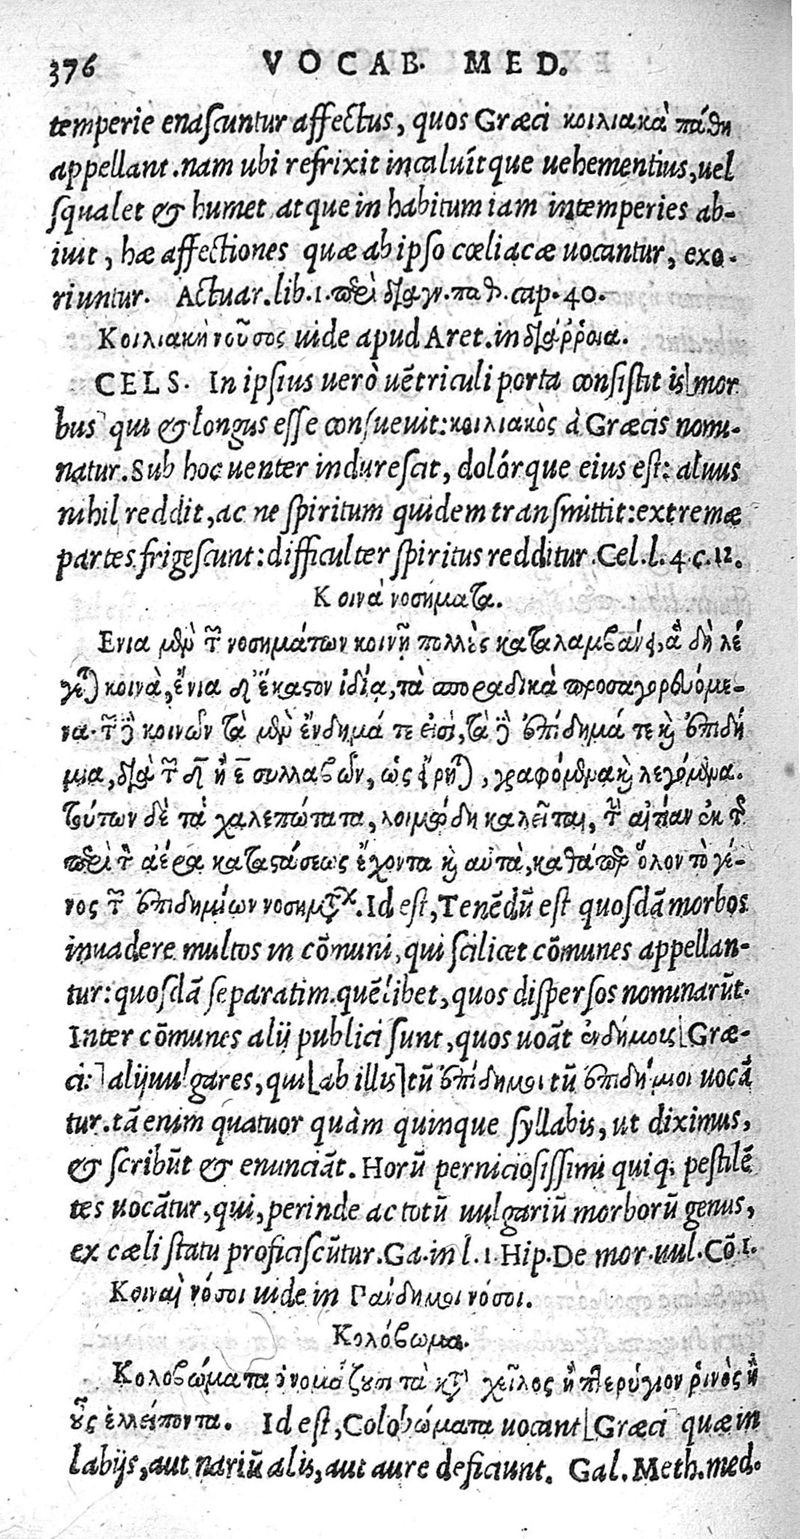 376 VOCAB. MED.
temperie enascuntur affectus, quos Græci κοιλιακὰ πάθη
appellant. nam ubi refrixit incaluítque uehementius, uel
squalet & humet atque in habitum iam intemperies ab-
iuit, hæ affectiones quæ ab ipso cœliacæ uocantur, exo-
riuntur. Actuar. lib. 1. περὶ διαγν. παθ. cap. 40.
Κοιλιακὴ νοῦσος uide apud Aret. in διάῤῥοια.
CELS. In ipsius uerò uẽtriculi porta consistit is mor
bus qui & longus esse consueuit: κοιλιακὸς à Græcis nomi-
natur. Sub hoc uenter indurescit, dolórque eius est: aluus
nihil reddit, ac ne spiritum quidem transmittit: extremæ
partes frigescunt: difficulter spiritus redditur. Cel. l. 4. c. 12.
Κοινὰ νοσήματα.
Ενια μὲν τῶν νοσημάτων κοινῇ πολλὲς καταλαμβάνει, ἃ δὴ λέ
γεται κοινὰ, ἔνια δ' ἕκαστον ἰδίᾳ, τὰ σποραδικὰ προσαγορευόμε-
να. τῶν δὲ κοινῶν τὰ μὲν ἔνδημά τε εἰσὶ, τὰ δὲ ἐπίδημά τε καὶ ἐπιδή
μια, διὰ τῶν δ ἢ ε συλλαβῶν, ὡς εἴρηται, γραφόμενα καὶ λεγόμενα.
τούτων δὲ τὰ χαλεπώτατα, λοιμώδη καλεῖται, τὴν αἰτίαν ἐκ τῆς
περὶ τὸν ἀέρα καταστάσεως ἔχοντα καὶ αὐτὰ, καθάπερ ὅλον τὸ γέ-
νος τῶν ἐπιδημίων νοσημάτων. Id est, Tenẽdũ est quosdã morbos
inuadere multos in cõmuni, qui scilicet cõmunes appellan-
tur: quosdã separatim quẽlibet, quos dispersos nominarũt.
Inter cõmunes alij publici sunt, quos uoãt ἐνδήμους Græ-
ci: alij uulgares, qui ab illis tũ ἐπίδημοι tũ ἐπιδήμιοι uocã
tur. tã enim quatuor quàm quinque syllabis, ut diximus,
& scribũt & enunciãt. Horũ perniciosissimi quiq; pestilẽ
tes uocãtur, qui, perinde ac totũ uulgariũ morborũ genus,
ex cæli statu proficiscũtur. Ga. in l. 1. Hip. De mor. uul. Cõ. 1.
Κοιναὶ νόσοι uide in Πανδημοι νόσοι.
Κολόβωμα.
Κολοβώματα ὀνομάζουσι τὰ κατὰ χεῖλος ἢ πτερύγιον ῥινὸς ἢ
οὖς ἐλλείποντα. Id est, Colobώματα uocant Græci quæ in
labijs, aut nariũ alis, aut aure deficiunt. Gal. Meth. med.